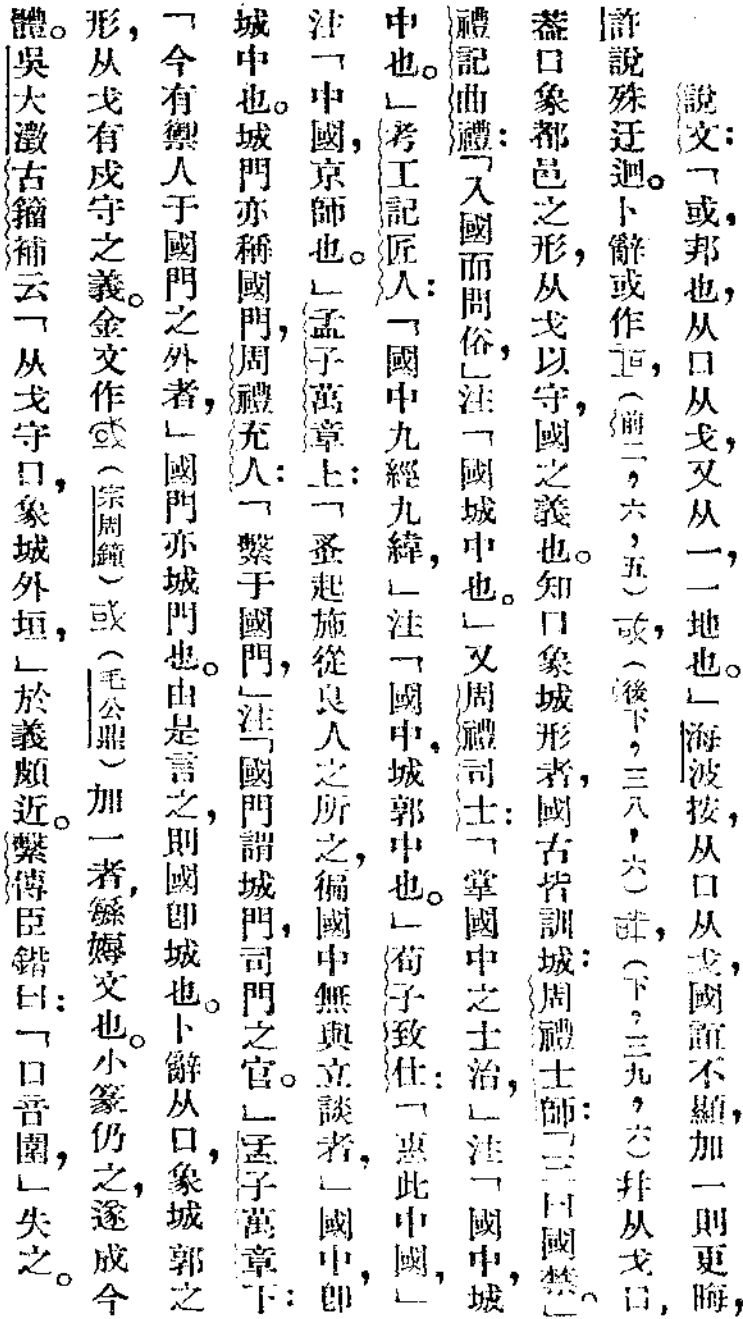 說文：「或，邦也，从囗从戈，又从一，一地也。」海波按，从口从戈，國誼不顯，加一則更晦，
許說殊迂迴。卜辭或作（前二，六，五），（後下，三八，六），（下，三九，六）并从戈口，
葢口象都邑之形，从戈以守，國之義也。知口象城形者，國古皆訓城：周禮士師：「三曰國禁。」
禮記曲禮：「入國而問俗，」注「國城中也。」又周禮司士：「掌國中之士治，」注「國中，城
中也。」考工記匠人：「國中九經九緯，」注「國中，城郭中也。」荀子致仕：「惠此中國，」
注「中國，京師也。」孟子萬章上：「蚤起施從良人之所之，徧國中無與立談者，」國中，卽
城中也。城門亦稱國門，周禮充人：「繫于國門，」注「國門謂城門，司門之官。」孟子萬章下：
「今有禦人于國門之外者，」國門亦城門也。由是言之，則國卽城也。卜辭从口，象城郭之
形，从戈有戍守之義。金文作（宗周鐘）或（毛公鼎）加一者，緐媷文也。小篆仍之，遂成今
體。吳大澂古籀補云「从戈守口，象城外垣，」於義頗近。繫傳臣鍇曰：「口音圍，」失之。